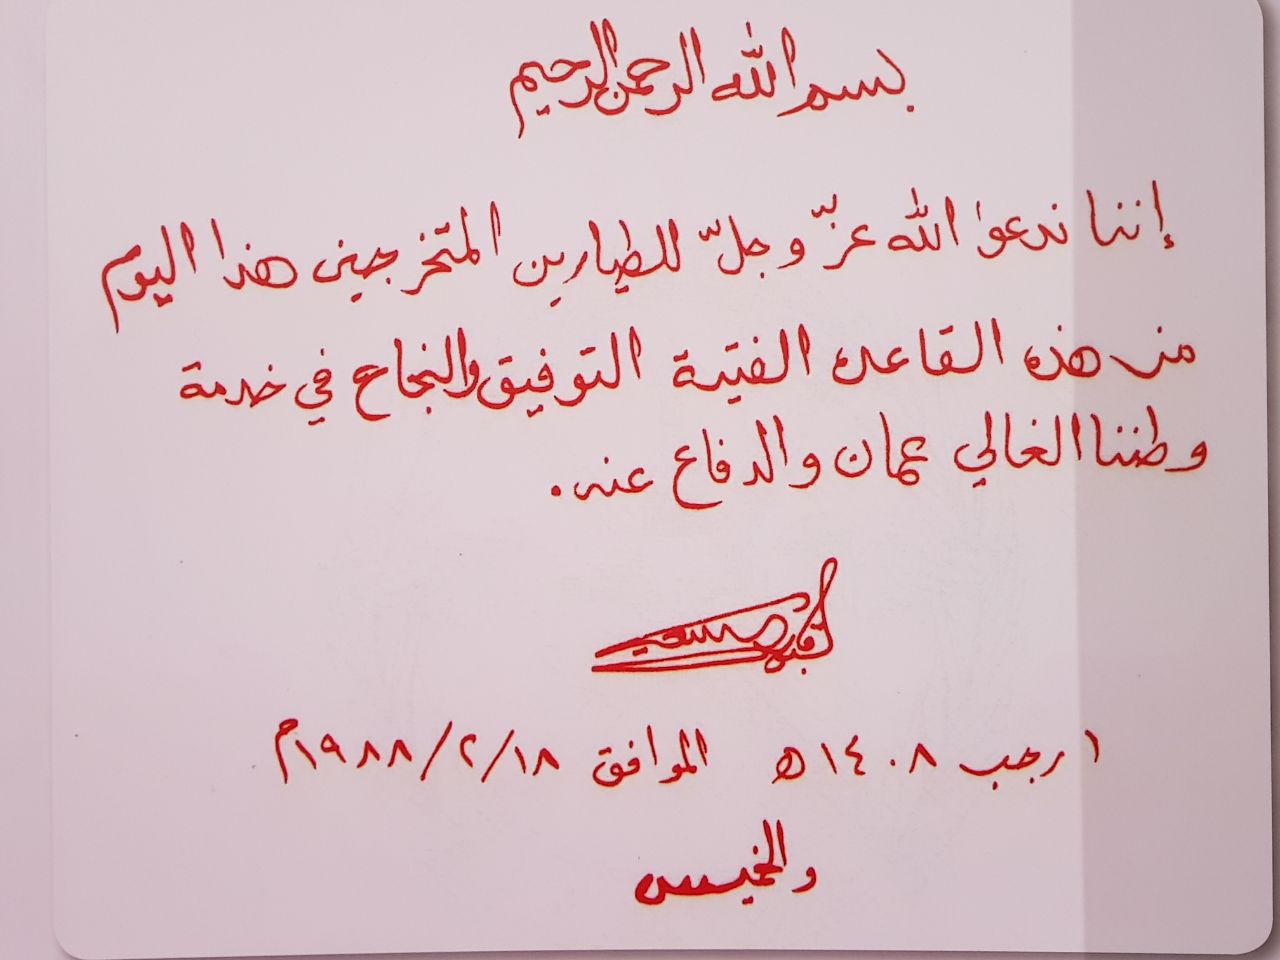 بسم الله الرحمن الرحيم
إننا ندعو الله عزّ وجلّ للطيارين المتخرجين هذا اليوم
من هذه القاعده الفتية التوفيق والنجاح في خدمة
وطننا الغالي عمان والدفاع عنه.
قابوس بن سعيد
١ رجب ١٤٠٨ ه الموافق ١٨/٢/١٩٨٨م
والخميس